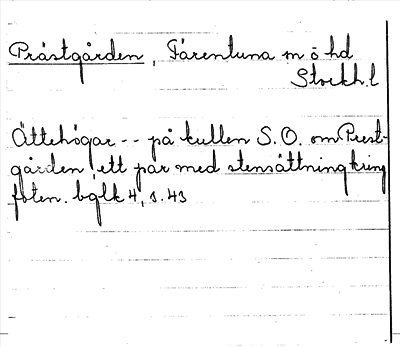 Prästgården, Färentuna m ö hd
Stockh. l
Ättehögar -- på kullen S.O. om Prest-
gården, ett par med stensättning kring
foten. bglk 4, s. 43